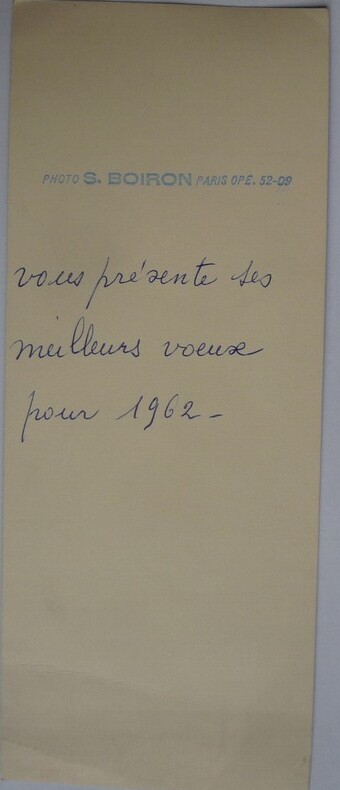 PHOTO S. BOIRON PARIS OPÉ. 52-09
vous présente ses
meilleurs voeux
pour 1962 -